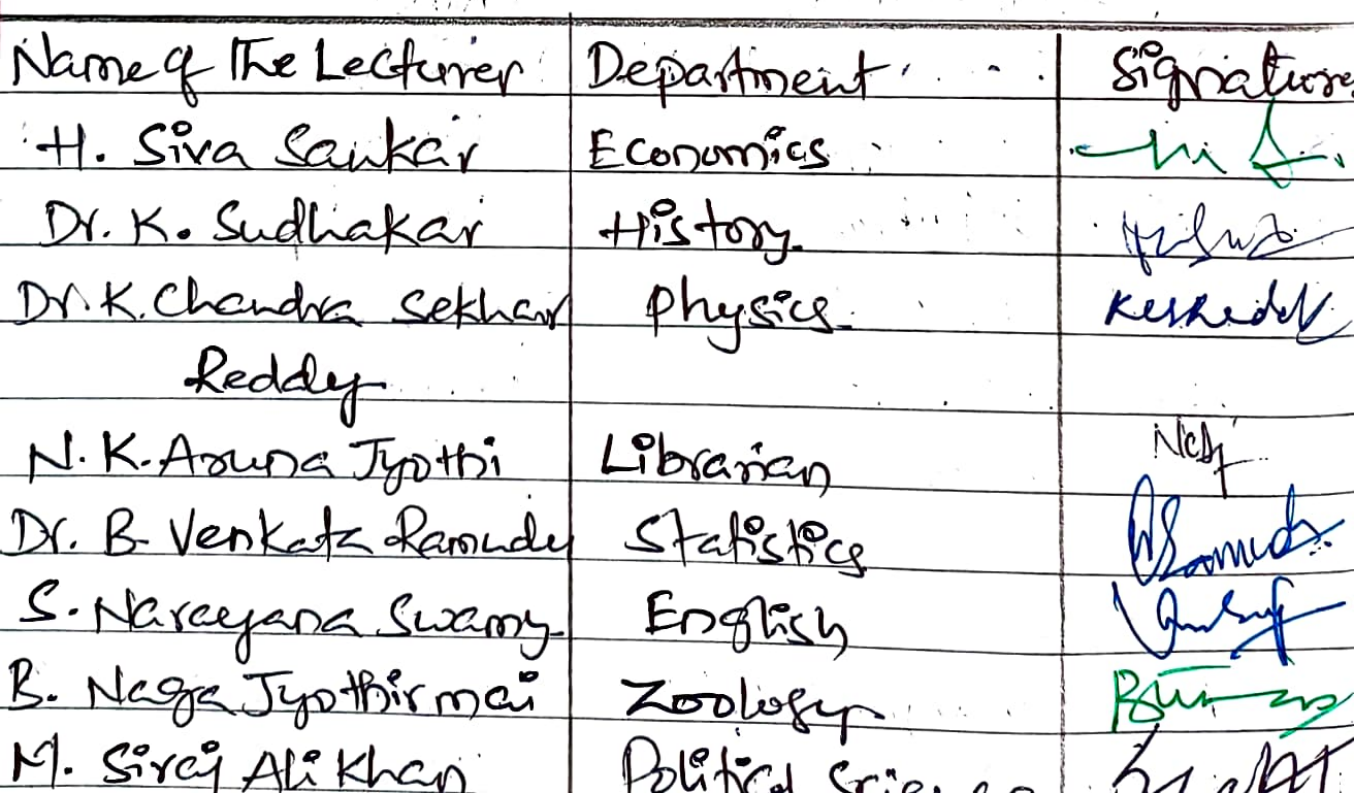 Name of The Lecturer Department Signature
H. Siva Sankar Economics
Dr. K. Sudhakar History
Dr. K. Chandra Sekhar Physics
Reddy
N. K. Aruna Jyothi Librarian
Dr. B Venkata Ramudu Statistics
S. Narayana Swamy English
B. Naga Jyothirmai Zoology
M. Siraj Ali Khan Political Science